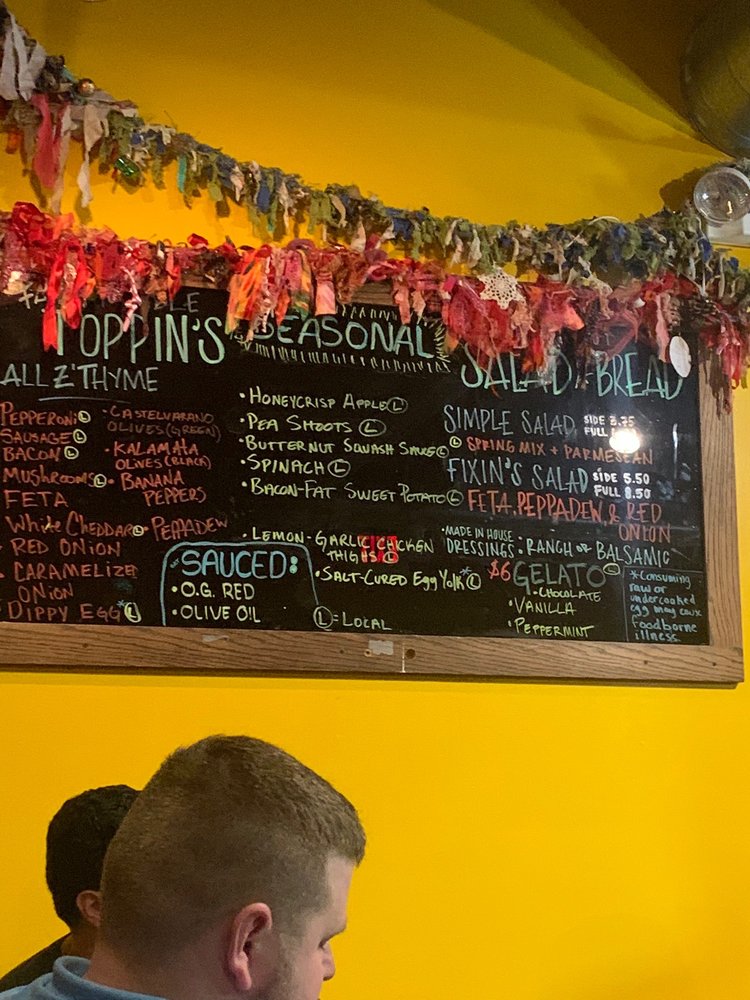 TOPPIN'S
ALL Z'THYME
PEPPERONI Ⓛ
SAUSAGE Ⓛ
BACON Ⓛ
MUSHROOMS Ⓛ
FETA
WHITE CHEDDAR Ⓛ
RED ONION
CARAMELIZED
ONION
DIPPY EGG* Ⓛ
• CASTELVARANO
OLIVES (GREEN)
• KALAMATA
OLIVES (BLACK)
• BANANA
PEPPERS
• PEPPADEW
SAUCED:
• O.G. RED
• OLIVE OIL
SEASONAL
• HONEYCRISP APPLE Ⓛ
• PEA SHOOTS Ⓛ
• BUTTERNUT SQUASH SAUCE Ⓛ
• SPINACH Ⓛ
• BACON-FAT SWEET POTATO Ⓛ
• LEMON-GARLIC CHICKEN
THIGHS Ⓛ
• SALT-CURED EGG YOLK* Ⓛ
Ⓛ = LOCAL
SALAD & BREAD
SIMPLE SALAD SIDE 3.75
FULL
SPRING MIX + PARMESEAN
FIXIN'S SALAD SIDE 5.50
FULL 8.50
FETA, PEPPADEW, & RED
ONION
• MADE IN HOUSE
DRESSINGS: RANCH OR BALSAMIC
$6 GELATO Ⓛ
• CHOCOLATE
• VANILLA
• PEPPERMINT
*Consuming
raw or
undercooked
egg may caux
foodborne
illness.